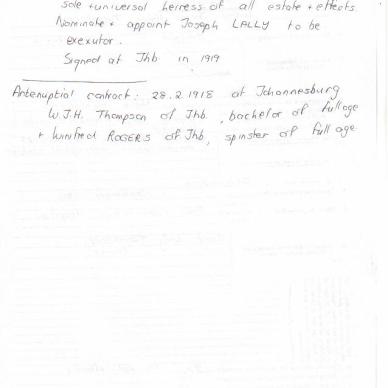 sole + universal heiress of all estate + effects.
Nominate + appoint Joseph LALLY to be
executor.
Signed at Jhb in 1919
Antenuptial contract: 28.2.1918 at Johannesburg
W.J.H. Thompson of Jhb., bachelor of full age
+ Winifred ROGERS of Jhb, spinster of full age